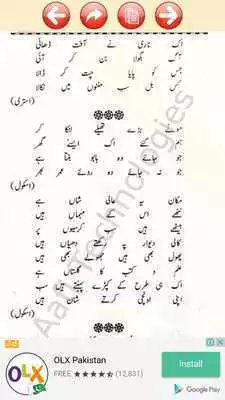 اک ناری نے آفت ڈھائی
آگ بگولا بن کر آئی
جس کو پایا چت کر ڈالا
کس بل سب منٹوں میں نکالا
(استری)
موٹے بڑے تھیلے لٹکا کر
ہم گئے اک ایسے گھر
جو جائے وہ بابو بنتا ہے
جو نہ جائے وہ روئے عمر بھر
(سکول)
مکان یہ عالی شاں ہے
ننھے اس کے مہماں ہیں
بیٹھتے ہیں سب کرسیوں پر
کالی دیوار پہ رکھتے دھیاں ہیں
ننھے بھی ہیں پھول بھی ہیں
علم و کتب کا گلستاں ہے
اک ہی طرح کے کپڑے پہنتے ہیں سب
اپنی اونچی کرتے شان ہیں
(سکول)
Aari Technologies
Ad
OLX Pakistan
FREE ★★★★★ (12,831)
Install
Google Play
OLX